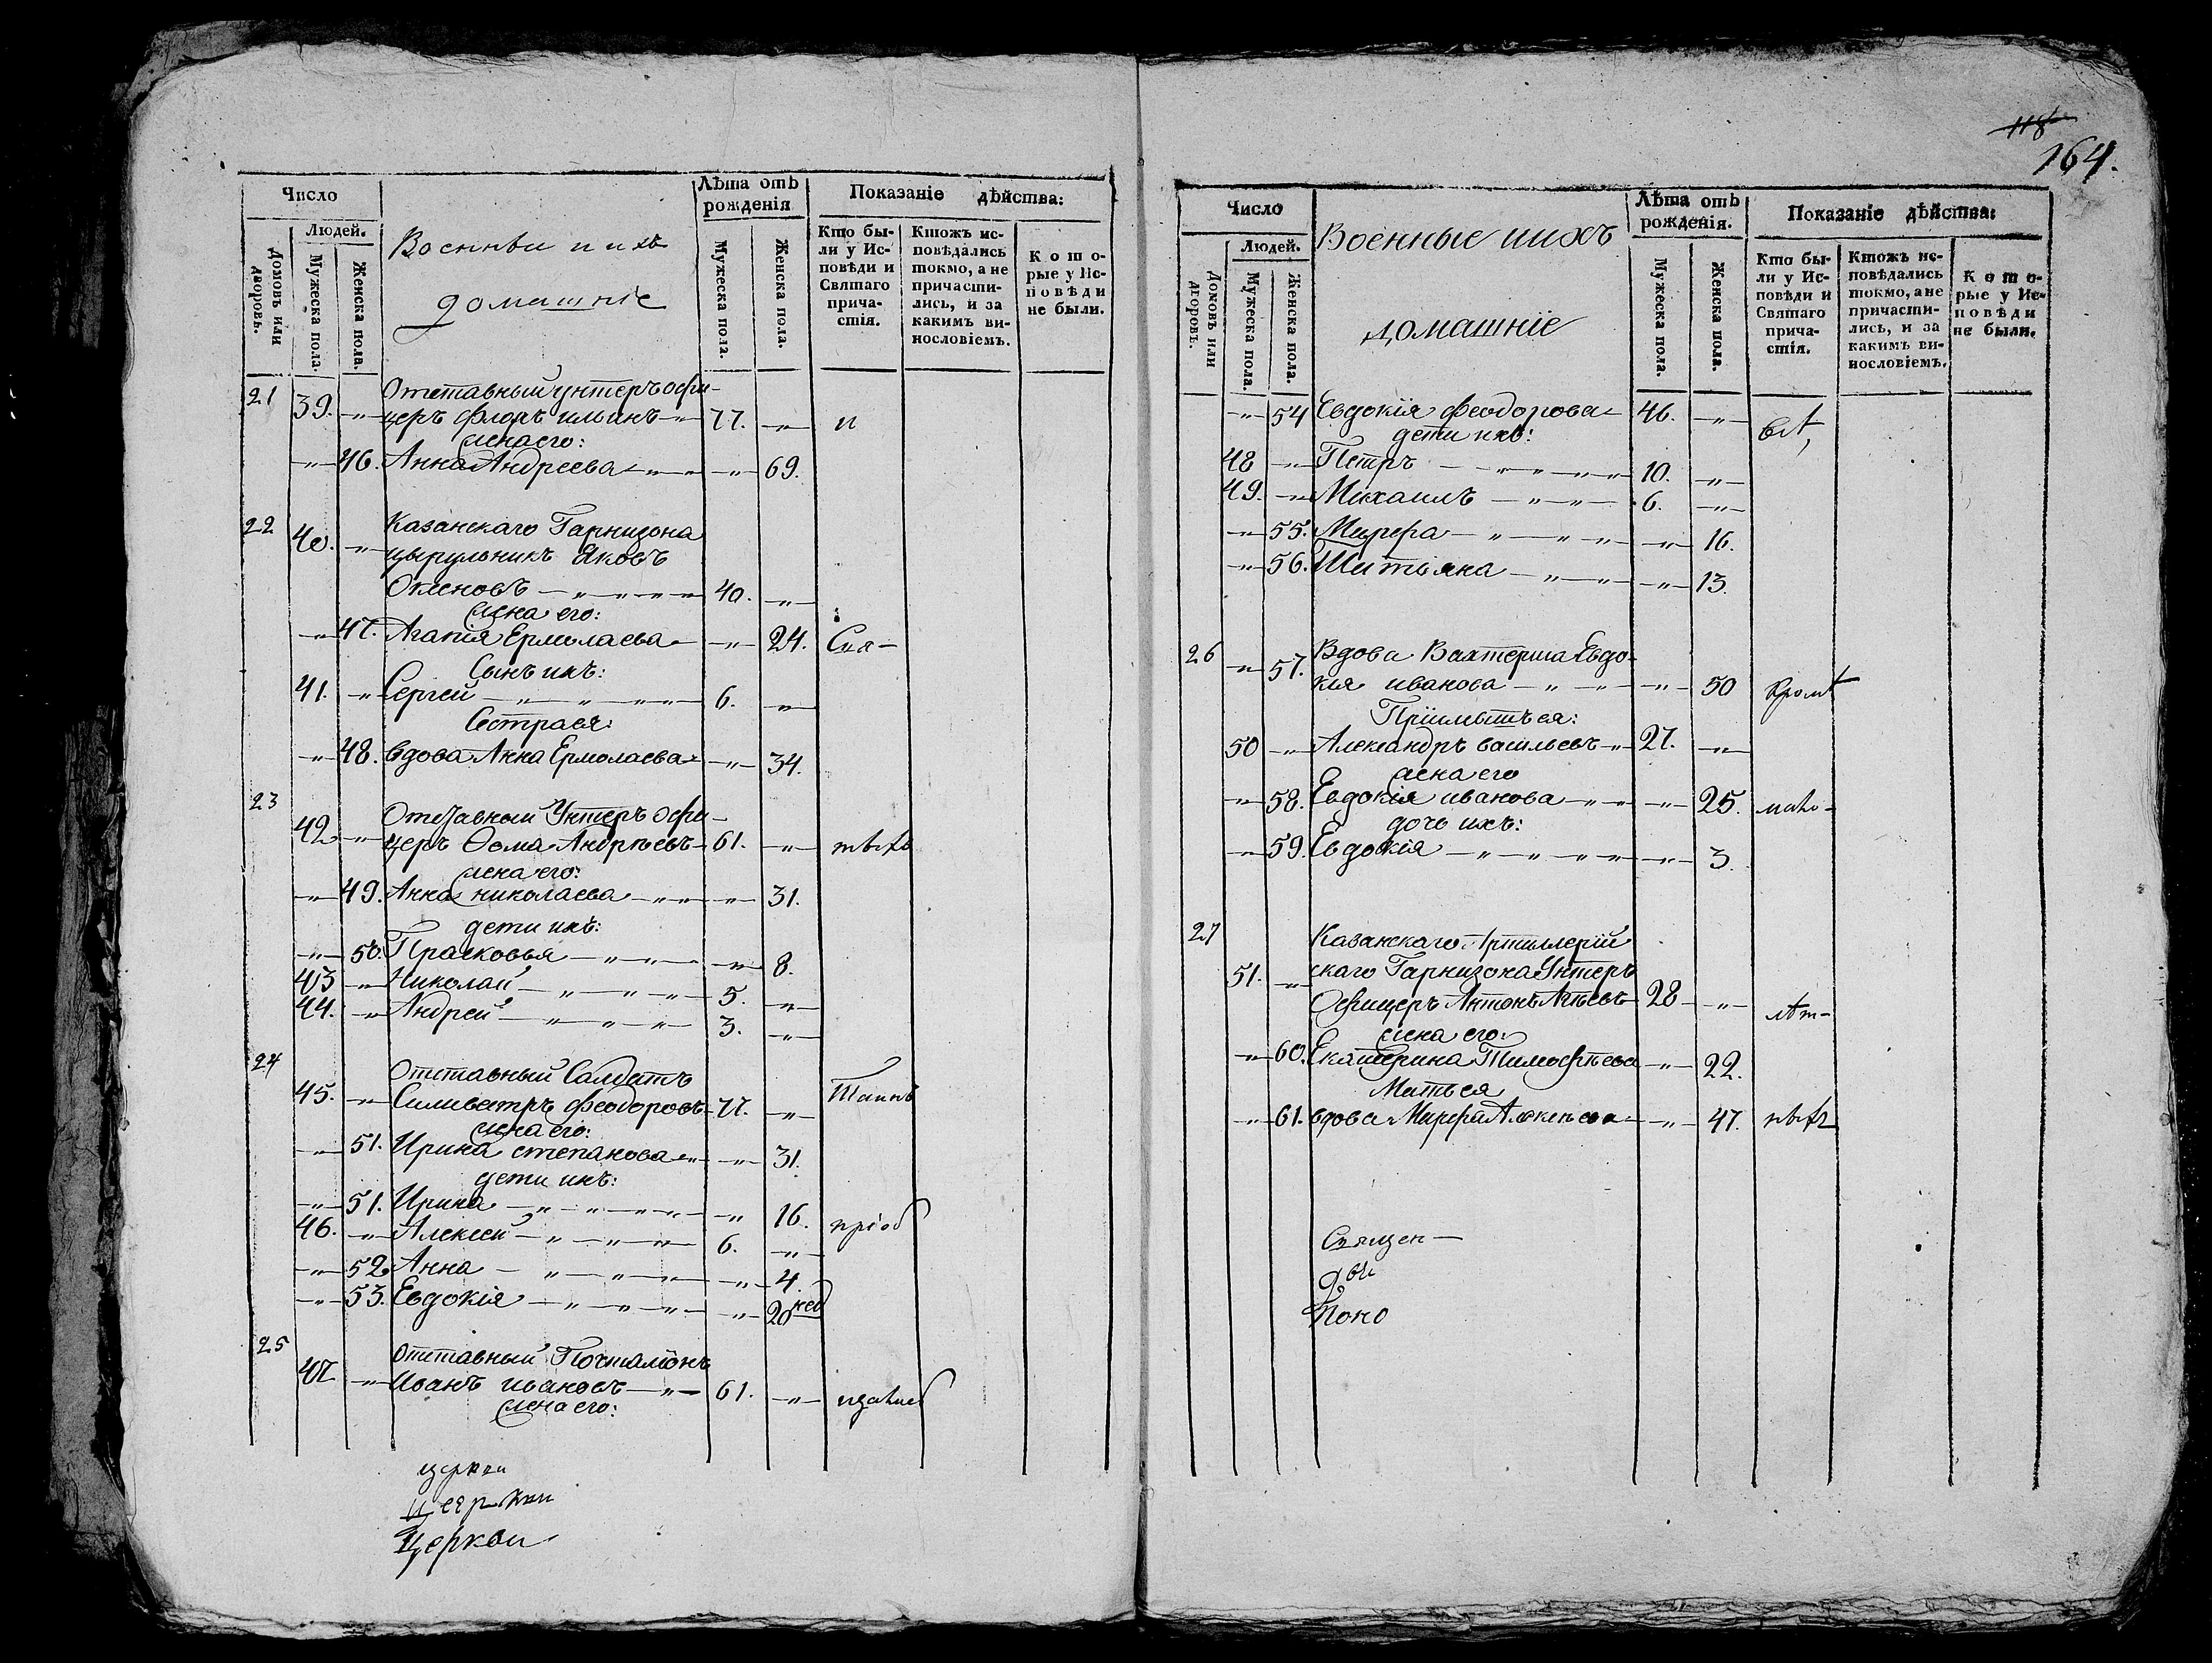 Число
Людей.
Домовъ или дворовъ.
Мужеска пола.
Женска пола.
Военныи и ихъ
домашніе
Лѣта отъ рожденія
Мужеска пола.
Женска пола.
Показаніе дѣйства:
Кто бы-
ли у Ис-
повѣди и
Святаго
прича-
стія.
Ктожъ ис-
повѣдались
токмо, а не
причасти-
лись, и за
какимъ ви-
нословіемъ.
Кото-
рые у Ис-
повѣди
не были.
21 Отставный унтеръ офи-
39. - церъ Флоръ ильинъ 77. - и
жена его:
- 46. Анна Андреева - 69.
22 Казанскаго Гарнизона
40. - цырульникъ Яковъ
40. -
жена его:
- 47. Агапія Ермолаева - 24. Свя-
Сынъ ихъ:
41. - Сергей 6. -
Сестра ея:
- 48. вдова Анна Ермолаева - 34.
23 Отставный Унтеръ офи-
42 - церъ Ѳома Андрѣевъ 61. -
жена его:
- 49. Анна николаева - 31.
дети ихъ:
- 50. Прасковья - 8.
43 - Николай 5. -
44. - Андрей 3. -
24 Отставный Салдатъ
45. - Силивестръ Феодоровъ 77. - Таинъ
жена его:
- 51. Ирина степанова - 31.
дети ихъ:
- 51. Ирина - 16. пріоб
46. - Алексей 6. -
- 52 Анна - 4.
- 53. Евдокія - 20 нед
25 Отставный Почталіонъ
47 - Иванъ ивановъ 61. -
жена его:
церкви
церкви
Церкви
118
164.
Число
Людей.
Домовъ или дворовъ.
Мужеска пола.
Женска пола.
Военные иихъ
домашніе
Лѣта отъ рожденія.
Мужеска пола.
Женска пола.
Показаніе дѣйства:
Кто бы-
ли у Ис-
повѣди и
Святаго
прича-
стія.
Ктожъ ис-
повѣдались
токмо, а не
причасти-
лись, и за
какимъ ви-
нословіемъ.
Кото-
рые у Ис-
повѣди
не были.
- 54 Евдокія Феодорова 46. - всѣ,
дети ихъ:
48 - Петръ 10. -
49. - Михаилъ 6. -
- 55. Марфа - 16.
- 56. Татьяна - 13.
26 Вдова Вахтерша Евдо-
- 57. кія иванова - 50 кромѣ
Пріимышъ ея:
50 - Александръ васильевъ 27. -
жена его
- 58. Евдокія иванова - 25. мало-
дочь ихъ:
- 59. Евдокія - 3.
27 Казанскаго Артиллерій
51. - скаго Гарнизона Унтеръ
Офицеръ Антонъ 28 - лѣт-
жена его:
- 60. Екатерина Тимофѣева - 22.
Мать ея
- 61. вдова Марфа Алексѣева - 47. ныхъ
Священ-
Поно